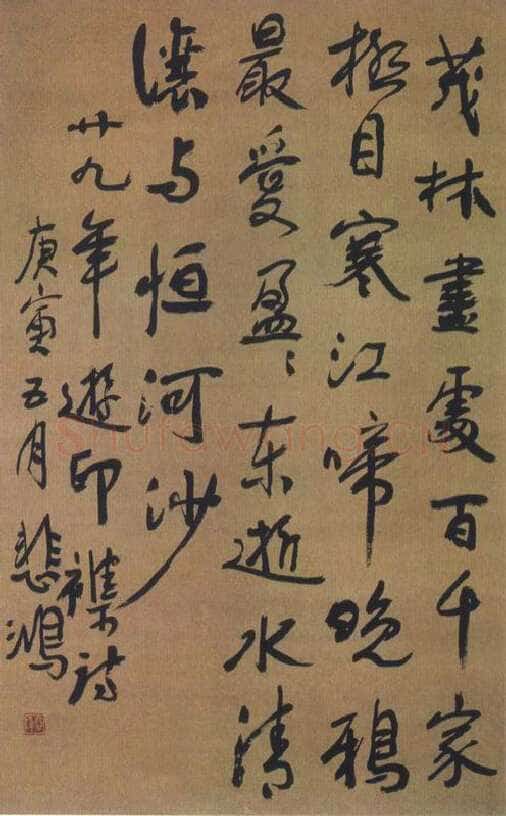 茂林盡處百千家
極目寒江啼晚鴉
最愛盈〻东逝水清
瀼与恒河沙
廿九年遊印襍詩
庚寅五月悲鴻